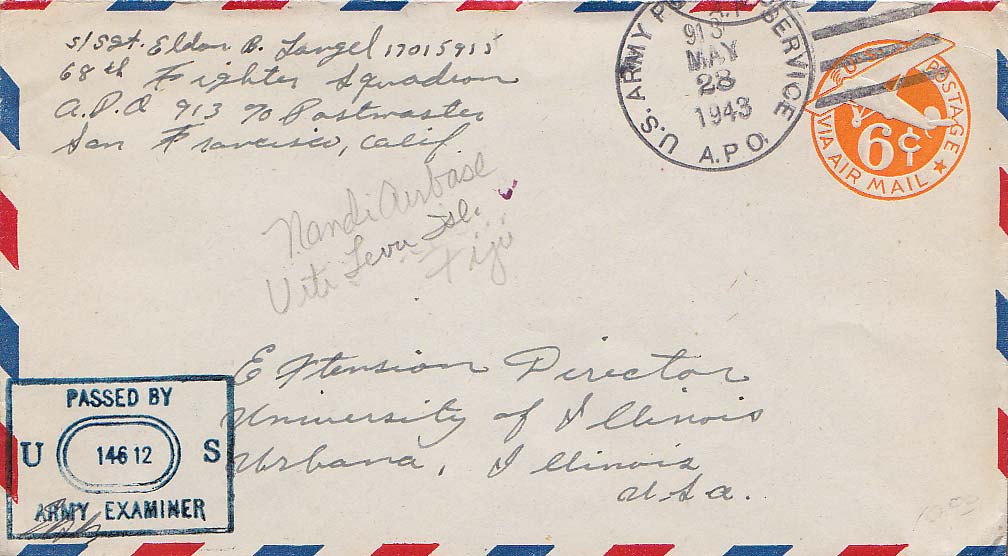 S/Sgt. Eldor B. Langel 17015915
68th Fighter Squadron
A.P.O 913 % Postmaster
San Francisco, Calif.
U.S. ARMY POSTAL SERVICE
913
MAY
28
1943
A.P.O.
U.S. POSTAGE
6¢
VIA AIR MAIL
Nandi Airbase
Viti Levu Isl.
Fiji
Extension Director
University of Illinois
Urbana, Illinois
U.S.A.
PASSED BY
U 14612 S
ARMY EXAMINER